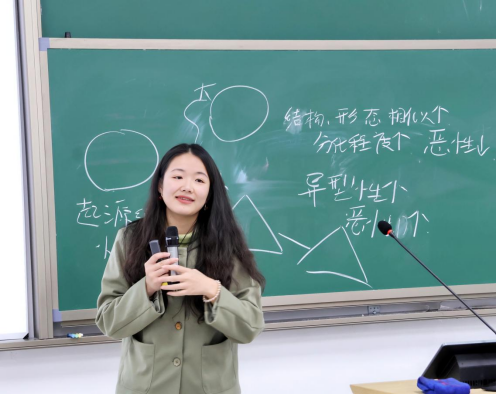 大
结构、形态相似↑
分化程度↑ 恶性↓
异型性↑
恶性↑
起源